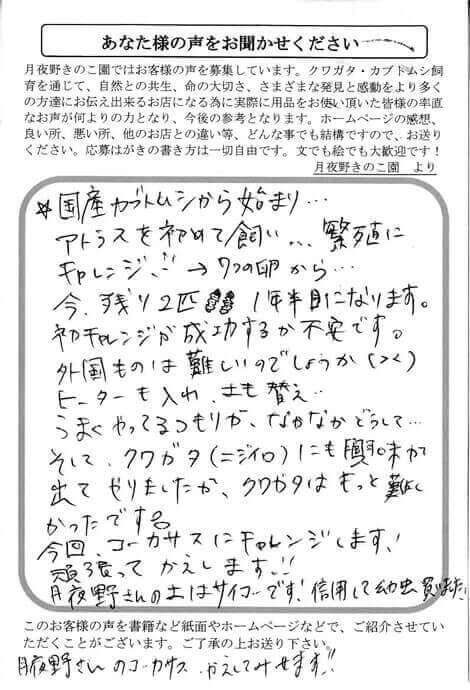 あなた様の声をお聞かせください
月夜野きのこ園ではお客様の声を募集しています。クワガタ・カブトムシ飼
育を通じて、自然との共生、命の大切さ、さまざまな発見と感動をより多く
の方達にお伝え出来るお店になる為に実際に用品をお使い頂いた皆様の率直
なお声が何よりの力となり、今後の参考となります。ホームページの感想、
良い所、悪い所、他のお店との違い等、どんな事でも結構ですので、お送り
ください。応募はがきの書き方は一切自由です。文でも絵でも大歓迎です！
月夜野きのこ園 より
☆国産カブトムシから始まり…
アトラスを初めて飼い… 繁殖に
チャレンジ!! → 7つの卵から…
今、残り2匹 1年半目になります。
初チャレンジが成功するか不安です。
外国ものは難しいのでしょうか(><)
ヒーターも入れ、土も替え…
うまくやってるつもりが、なかなかどうして…
そして、クワガタ(ニジイロ)にも興味が
出て やりましたが、クワガタはもっと難し
かったです。
今回、コーカサスにチャレンジします!
頑張って かえします!!
月夜野さんの土はサイコーです! 信用して幼虫買いました!
このお客様の声を書籍など紙面やホームページなどで、ご紹介させてい
ただくことがございます。ご了承の上お送り下さい。
月夜野さんのコーカサス かえしてみせます!!